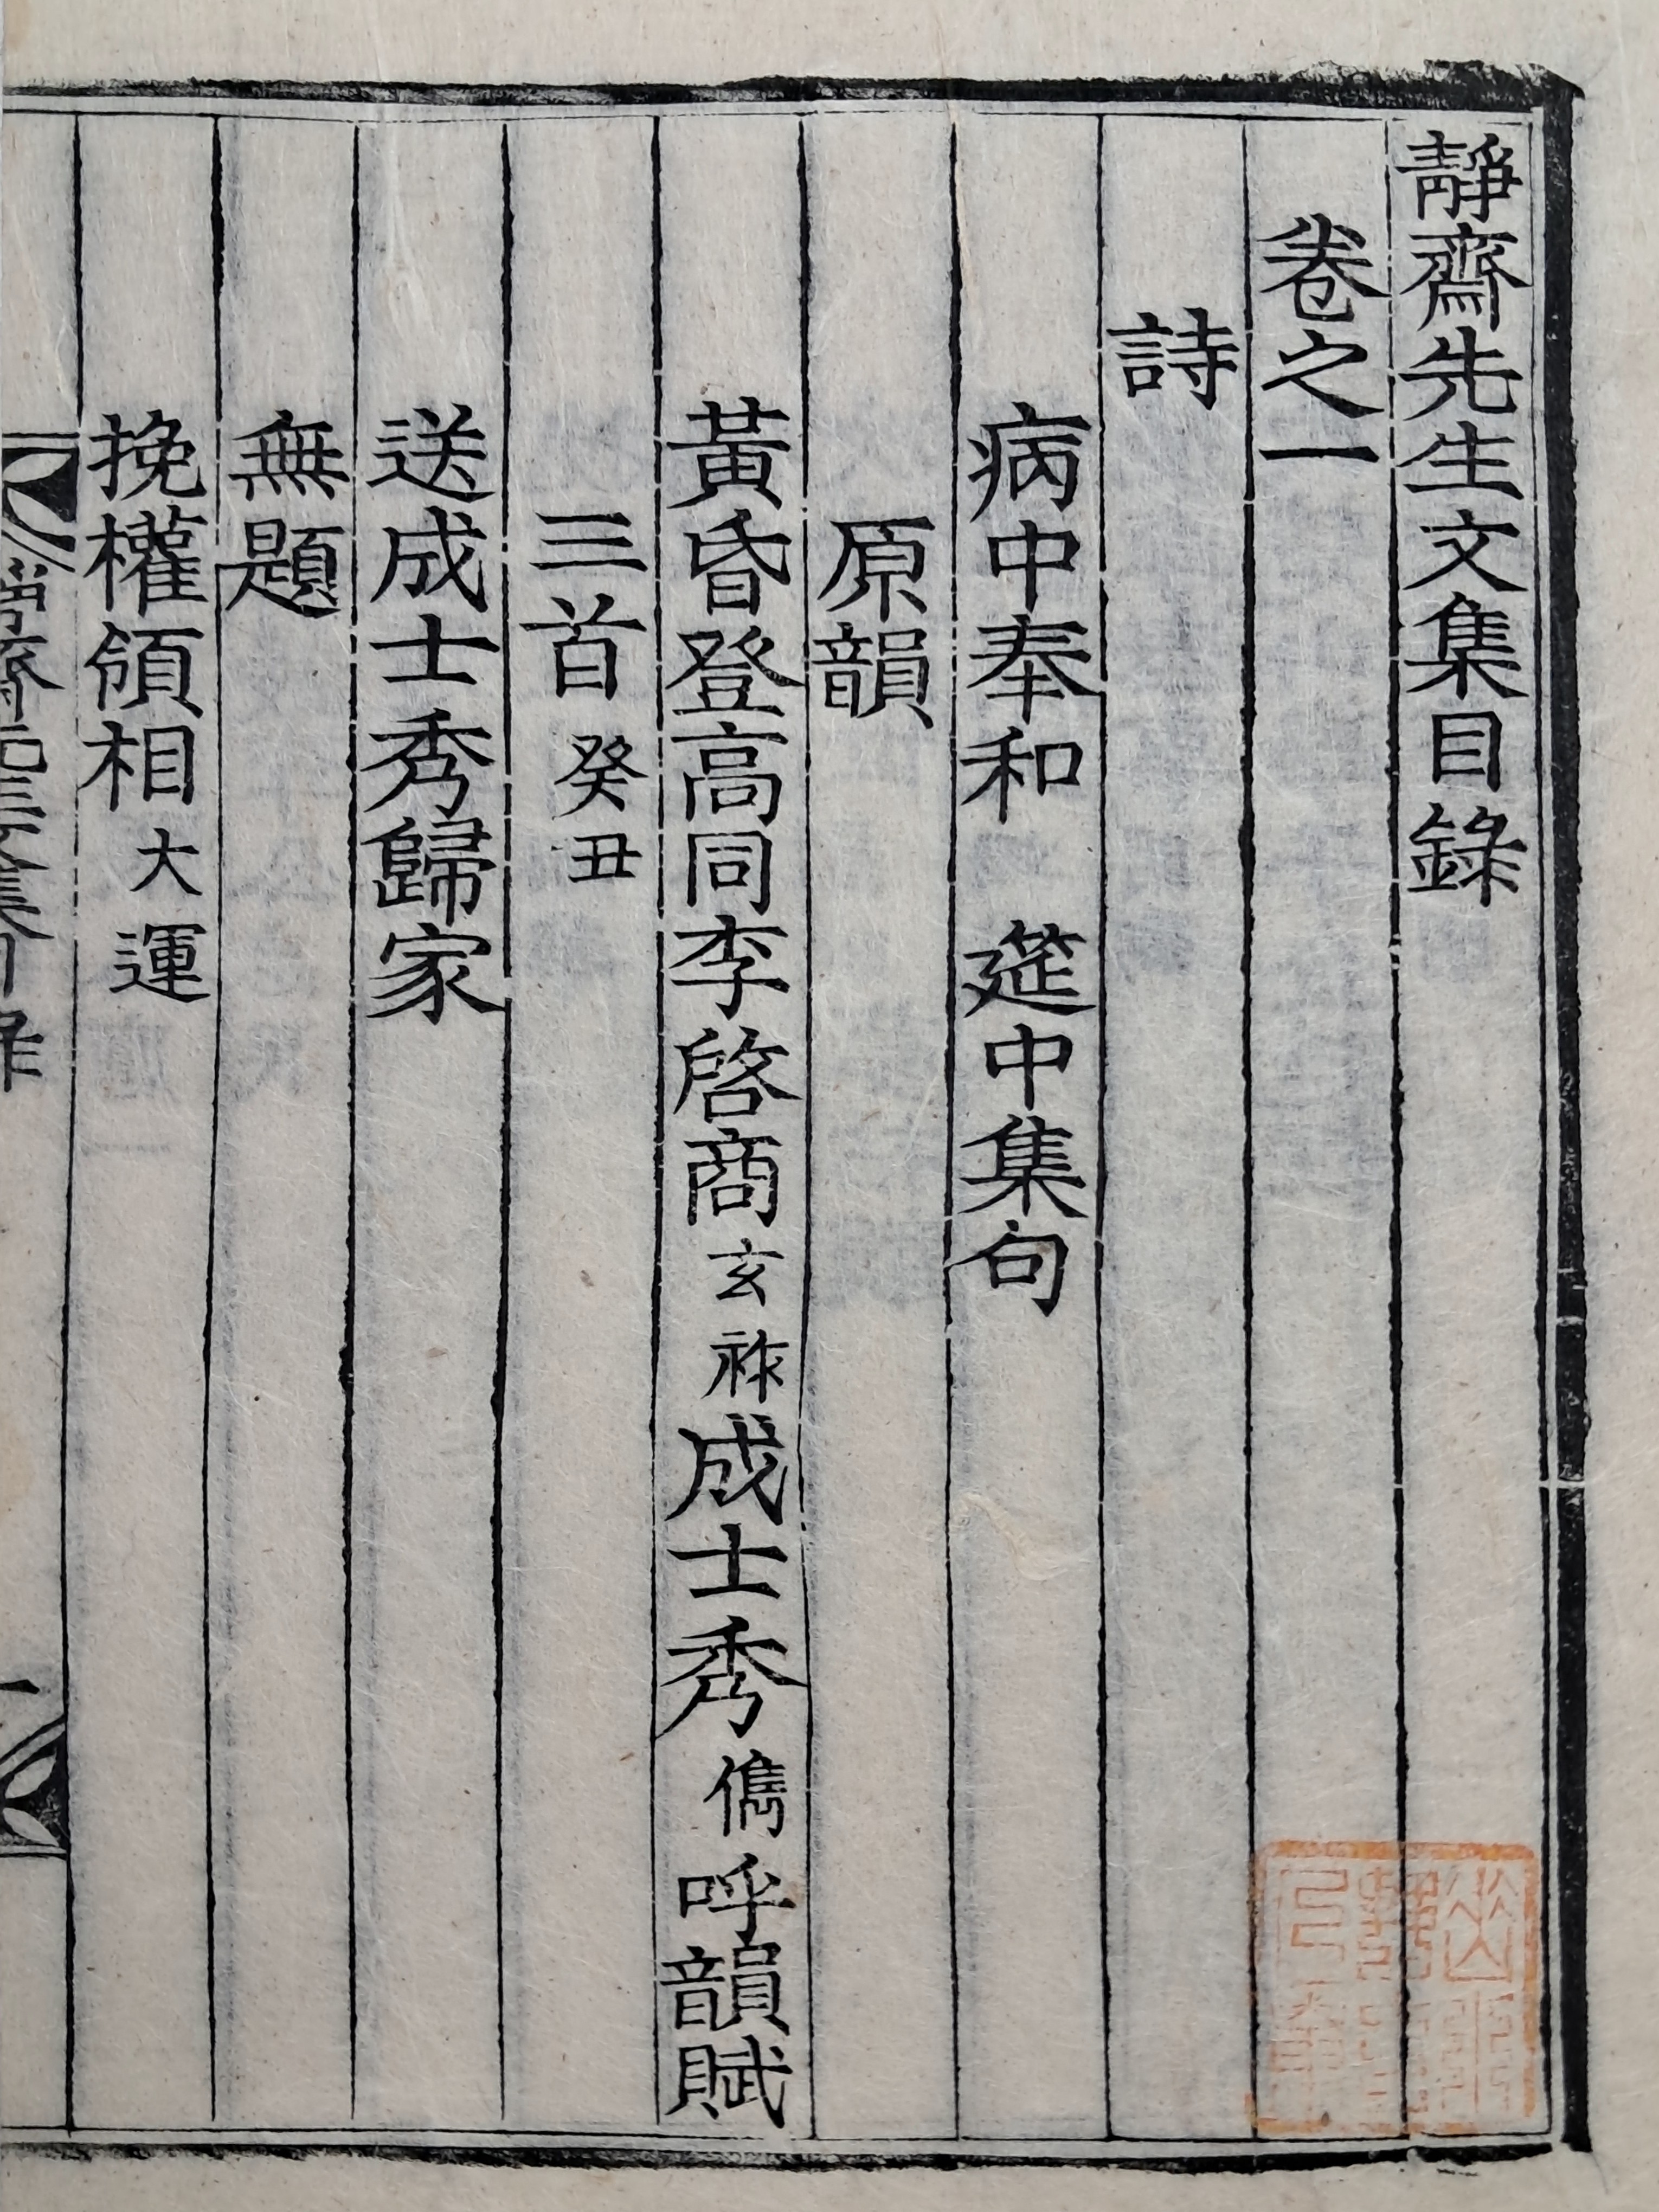 靜齋先生文集目錄
卷之一
詩
病中奉和　筵中集句
原韻
黃昏登高同李啓商玄祚成士秀儁呼韻賦
三首癸丑
送成士秀歸家
無題
挽權領相大運